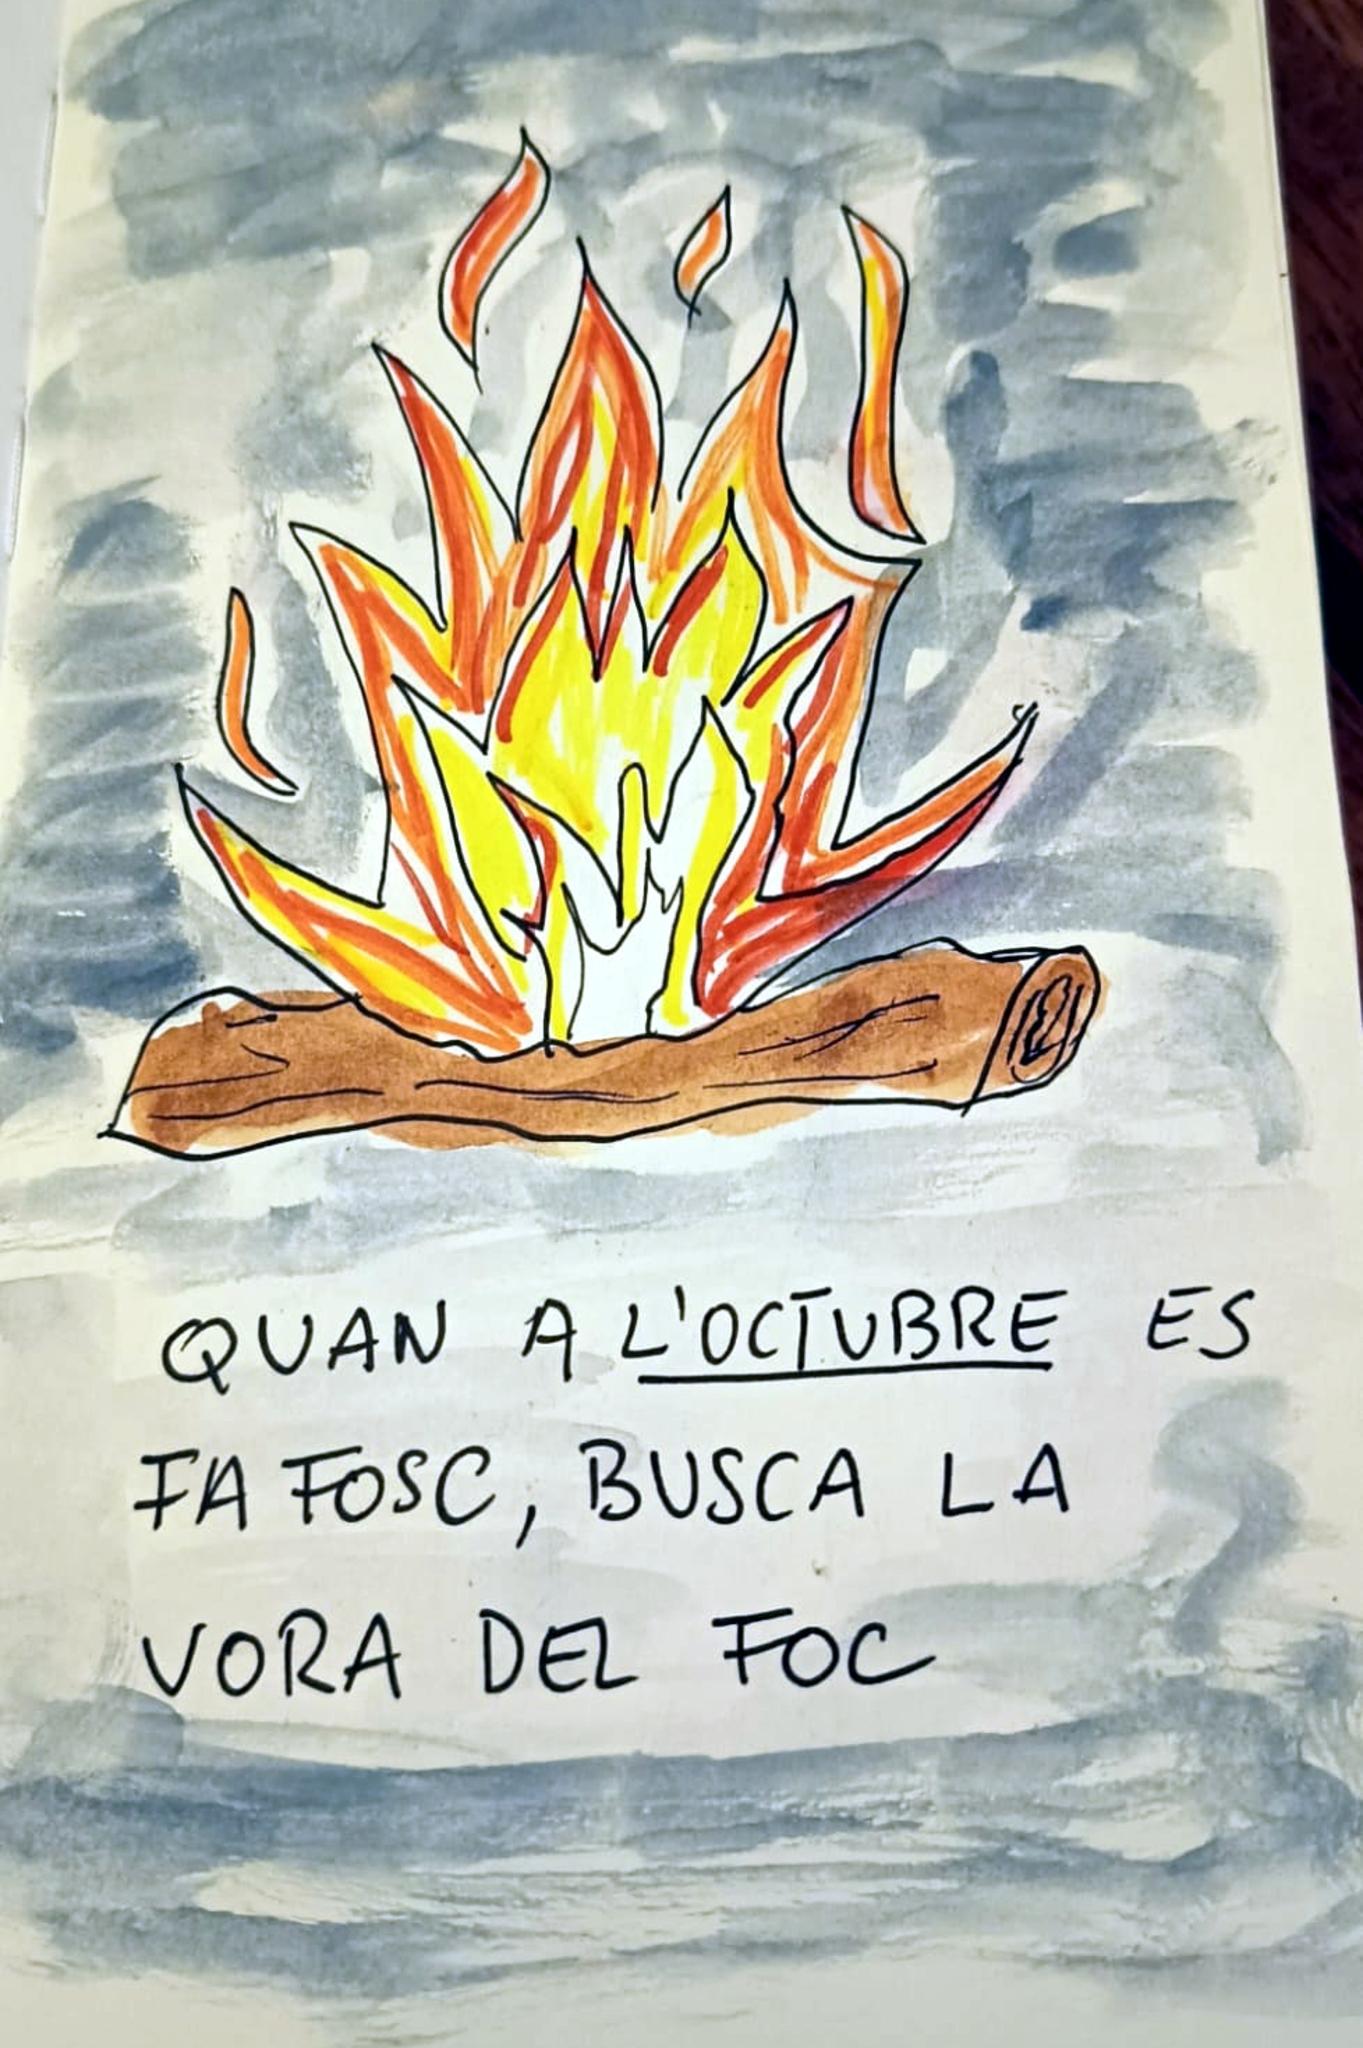 QUAN A L'OCTUBRE ES
FA FOSC, BUSCA LA
VORA DEL FOC